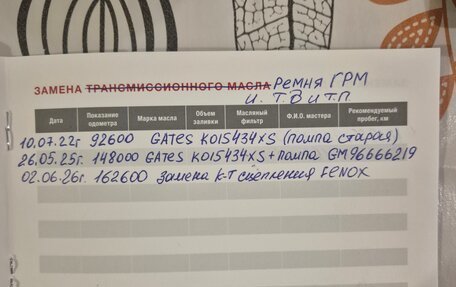 ЗАМЕНА ТРАНСМИССИОННОГО МАСЛА РЕМНЯ ГРМ
И. Т.Д И Т.П.
Дата Показание одометра Марка масла Объем заливки Масляный фильтр Ф.И.О. мастера Рекомендуемый пробег, км
10.07.22г 92600 GATES K015434XS (помпа старая)
26.05.25г. 148000 GATES K015434XS + помпа GM96666219
02.06.26г. 162600 Замена к-т сцепления FENOX